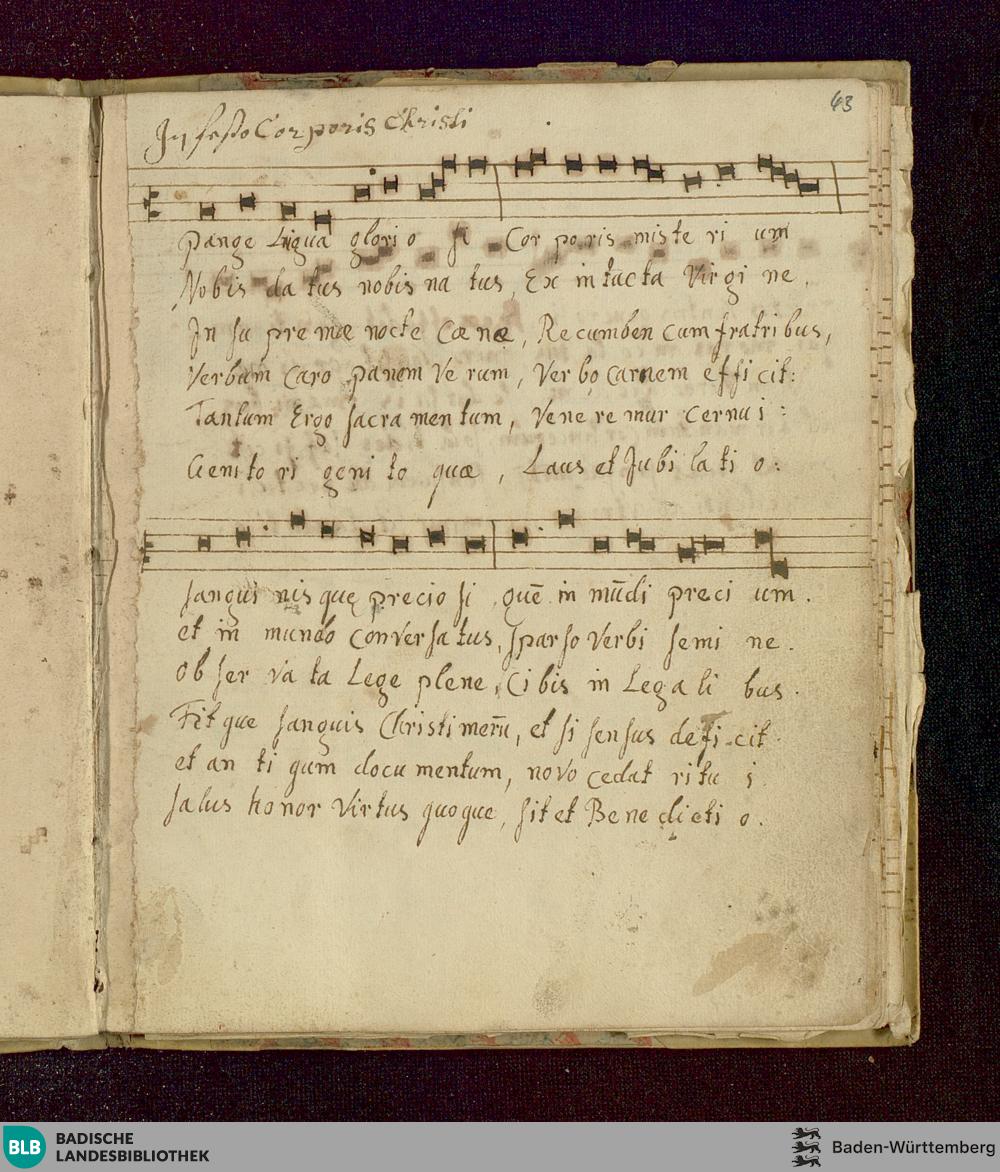 63
In festo Corporis Christi
pange Ligua glorio si Cor poris miste ri um
Nobis da tus nobis na tus, Ex intacta Virgi ne.
In su premæ nocte Cœnæ, Recumben cum fratribus,
Verbum Caro panem Ve rum, Verbo carnem efficit:
Tantum Ergo sacra mentum, Vene re mur cernu i:
Geni to ri geni to quæ, Laus et Jubi la ti o:
sangui nis quę precio si, quē in mūdi preci um.
et in mundo conversa tus, sparso Verbi semi ne.
Ob ser va ta Lege plene, Ci bis in Legali bus.
Fit que sanguis Christi merū, et si sensus defi cit
et an ti qum docu mentum, novo cedat ritu i
salus honor Virtus quoque, sit et Bene dicti o.
BLB BADISCHE
LANDESBIBLIOTHEK
Baden-Württemberg